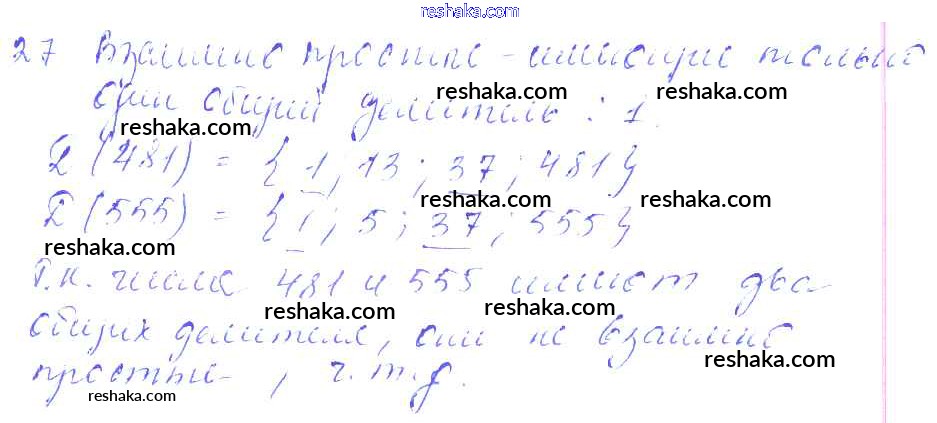 reshaka.com
27 Взаимно простые - имеющие только
reshaka.com reshaka.com
один общий делитель : 1.
reshaka.com
D (481) = { 1 ; 13 ; 37 ; 481 }
reshaka.com reshaka.com
D (555) = { 1 ; 5 ; 37 ; 555 }
reshaka.com
Т.к. числа 481 и 555 имеют два
reshaka.com reshaka.com
общих делителя, они не взаимно
reshaka.com
простые , ч.т.д.
reshaka.com